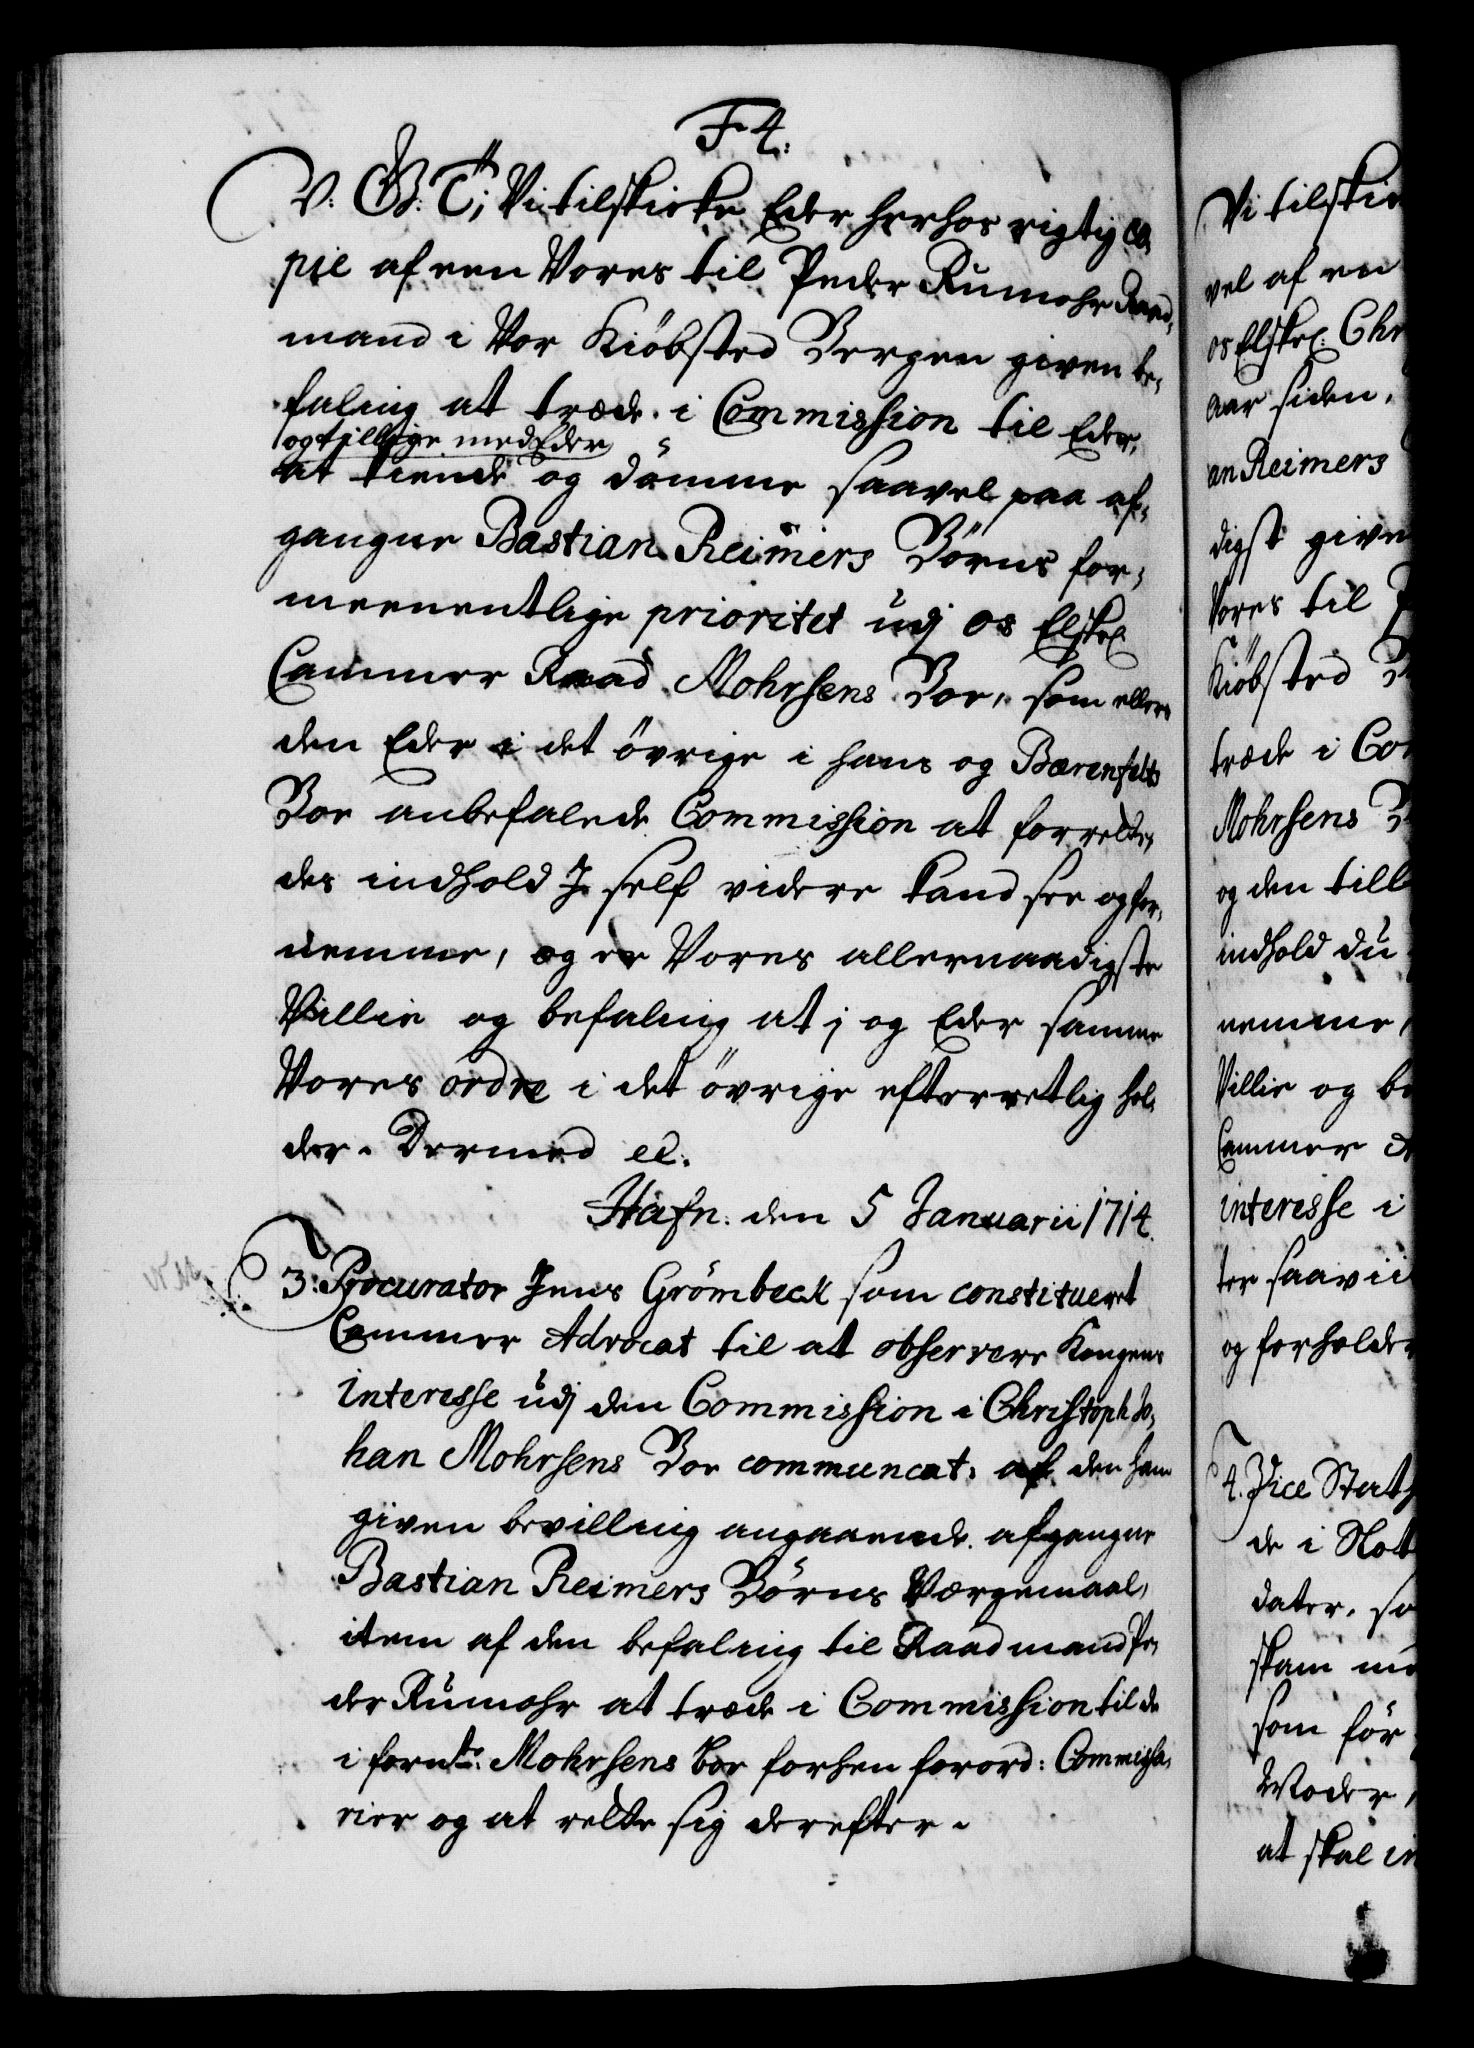 F 4.
V: G: T; Vi tilskicke Eder herhos rigtig co¬
pie af een Vores til Peder Rumohr Raad¬
mand i Vor Kiöbsted Bergen given be¬
faling at træde i Commission til Eder,
og tillige med Eder
at kiende og dömme saavel paa af¬
gangne Bastian Reimers Börns for¬
meenentlige prioritet udj os Elskel:
Cammer Raad Mohrsens Boe, som ellers
den Eder i det övrige i hans og Bærenfelts
Boe anbefalede Commission at forrette,
des indhold I self videre kand see og for¬
nemme, og er Vores allernaadigste
Villie og befaling at j og Eder samme
Vores ordre i det övrige efterretlig hol¬
der. Dermed etc.
Hafn: den 5 Januarii 1714.
3: Procurator Jens Grömbeck som constitueret
Cammer Advocat til at observere Kongens
interesse udj den Commission i Christoph Jo¬
han Mohrsens Boe communcat: af den ham
given bevilling angaaende afgangne
Bastian Reimers Börns Værgemaal,
item af den befaling til Raadmand Pe¬
der Rumohr at træde i Commission til de
i fornte: Mohrsens boe forhen forord: Commissa¬
rier og at rette sig derefter.
Vi tilskic
vel af en
os Elskel: Chr
aar siden,
an Reimers
digst given
Vores til P
Kiöbsted B
træde i Com
Mohrsens B
og den till
indhold du
nemme,
Villie og be
Cammer A
interesse i
ter saavii
og forholder
4. Vice Stath
de i Not
dater, so
skam me
som för
Moder,
at skal in